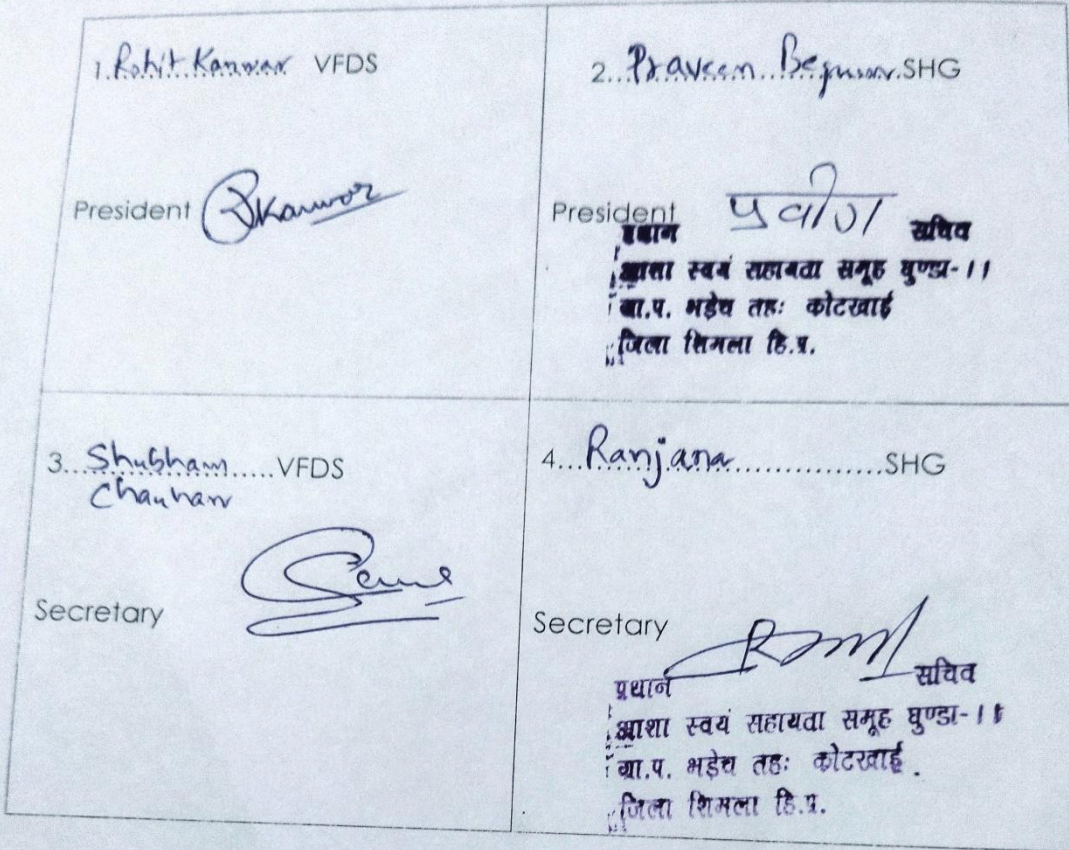 1. Rohit Kanwar VFDS
President RKanwar
2...Praveen Begum.SHG
President प्रवीण
प्रधान सचिव
आशा स्वयं सहायता समूह घुण्डा-।।
ग्रा.प. भड़ेच तहः कोटखाई
जिला शिमला हि.प्र.
3...Shubham.....VFDS
Chauhan
Secretary
4...Ranjana................SHG
Secretary
प्रधान सचिव
आशा स्वयं सहायता समूह घुण्डा-।।
ग्रा.प. भड़ेच तहः कोटखाई.
जिला शिमला हि.प्र.